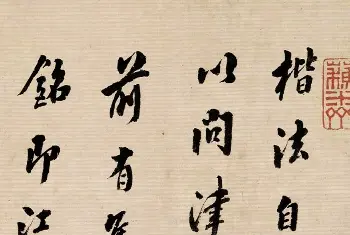 楷法自
以問津
前有
銘即江